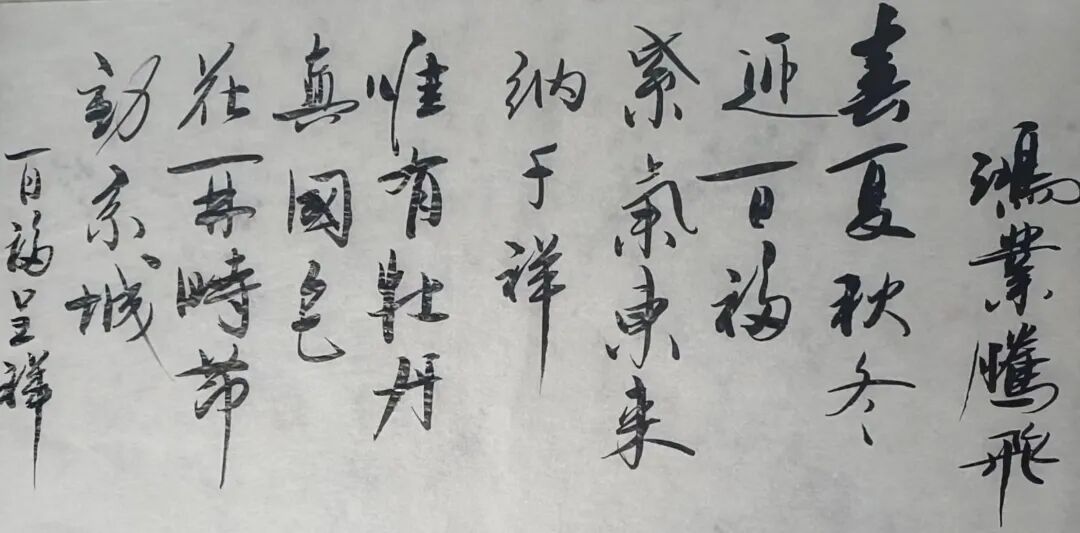 鴻業騰飛
春夏秋冬
迎百福
紫氣東来
納千祥
惟有牡丹
真國色
花開時節
動京城
百福呈祥